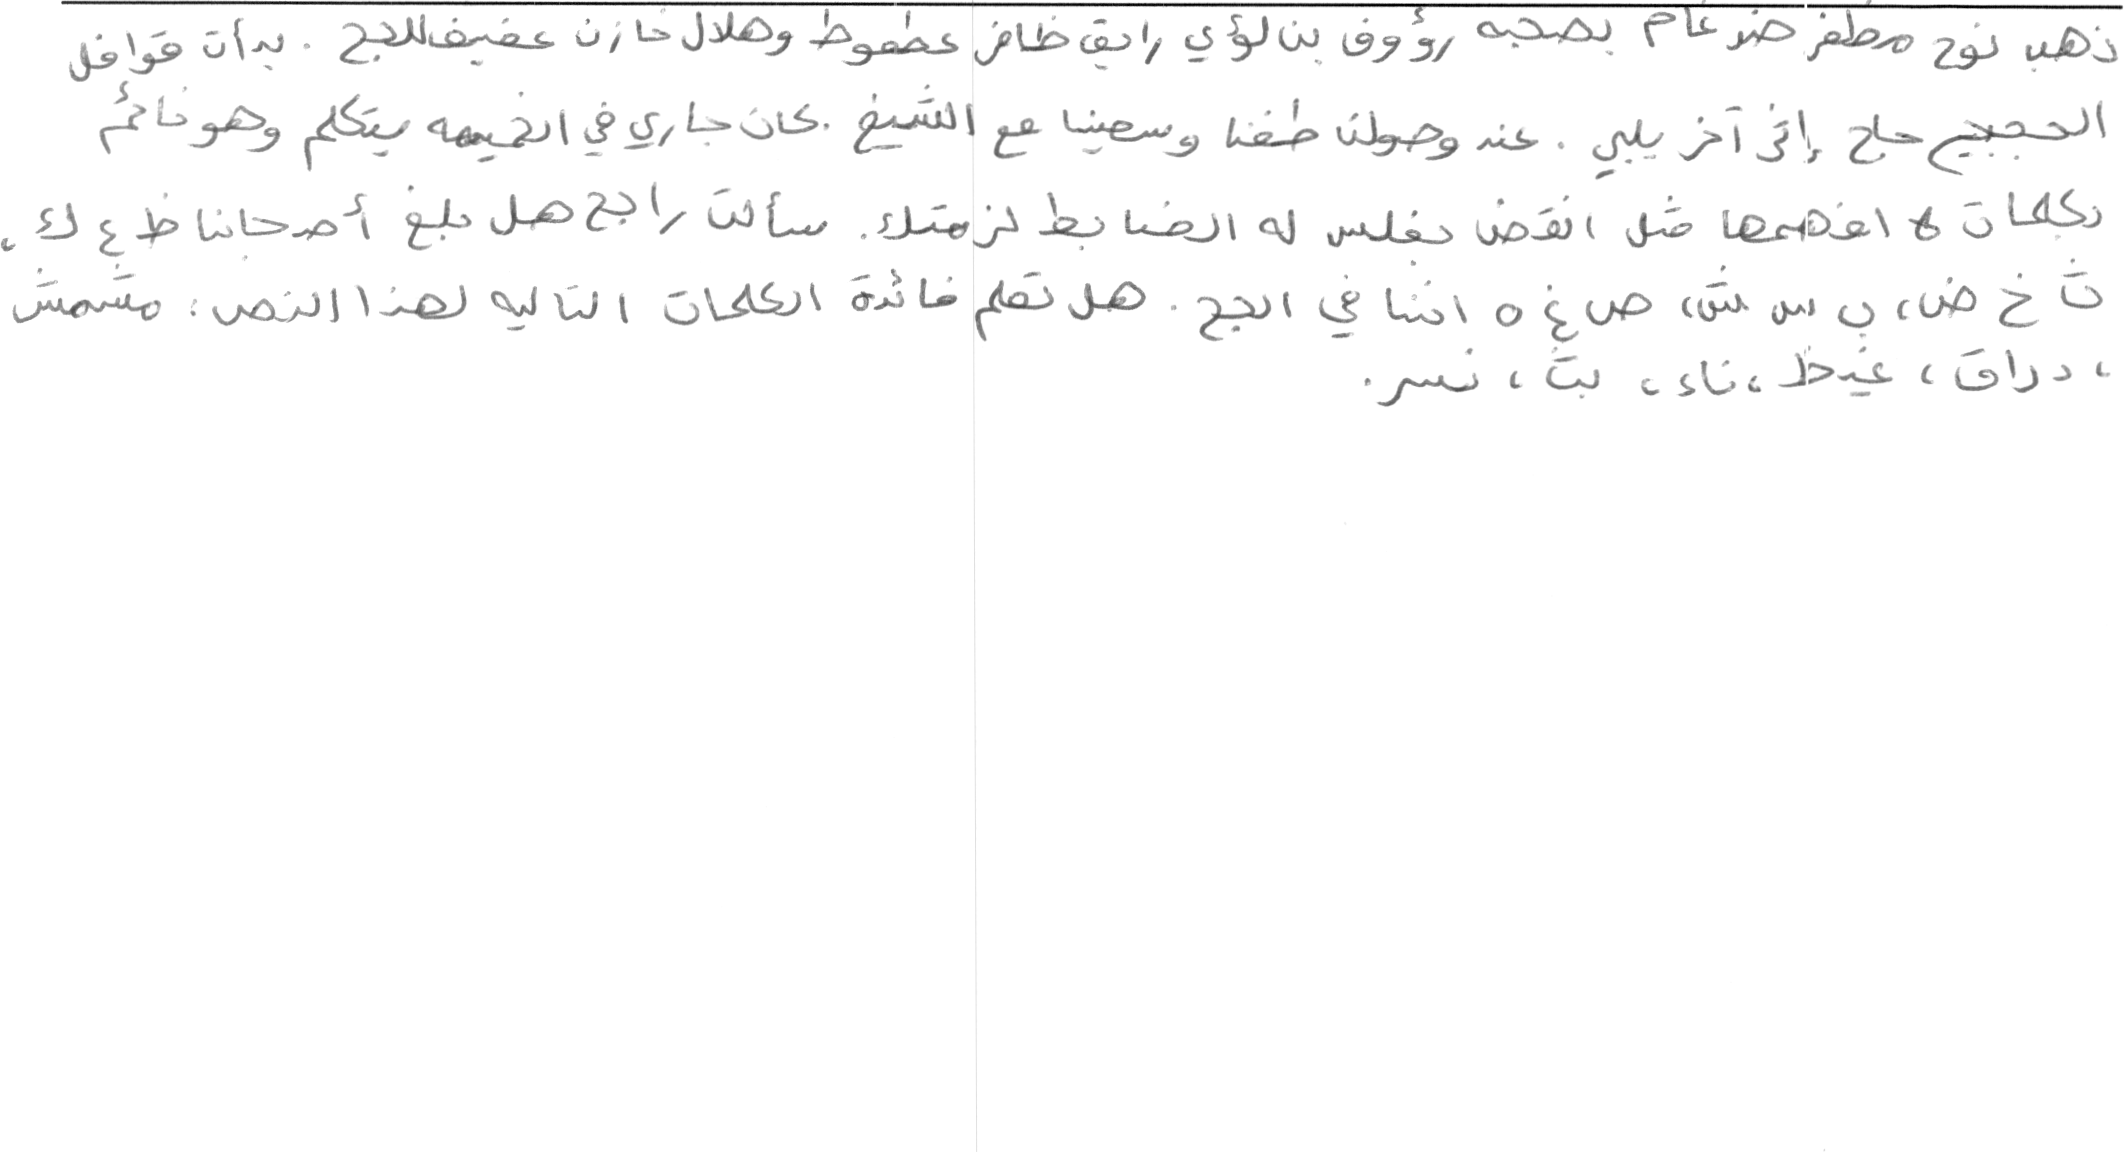 ذهب نوح مظفر ضرغام بصحبه رؤوف بن لؤي رايق ظافر عطعوط وهلال خازن عفيف للحج . بدأت قوافل
الحجيج حاج إثر آخر يلبي . عند وصولنا طفنا وسعينا مع الشيخ . كان جاري في الخيمه يتكلم وهو نائم
بكلمات لا افهمها مثل انقض بغلس له الضابط لزمتك . سألت راجح هل بلغ أصحابنا ظ ع ك ،
ث خ ض ، ب س ش ، ص غ ه اننا في الحج . هل تعلم فائدة الكلمات التاليه لهذا النص : مشمش
، دراق ، غيظ ، ناء ، بث ، نسر .